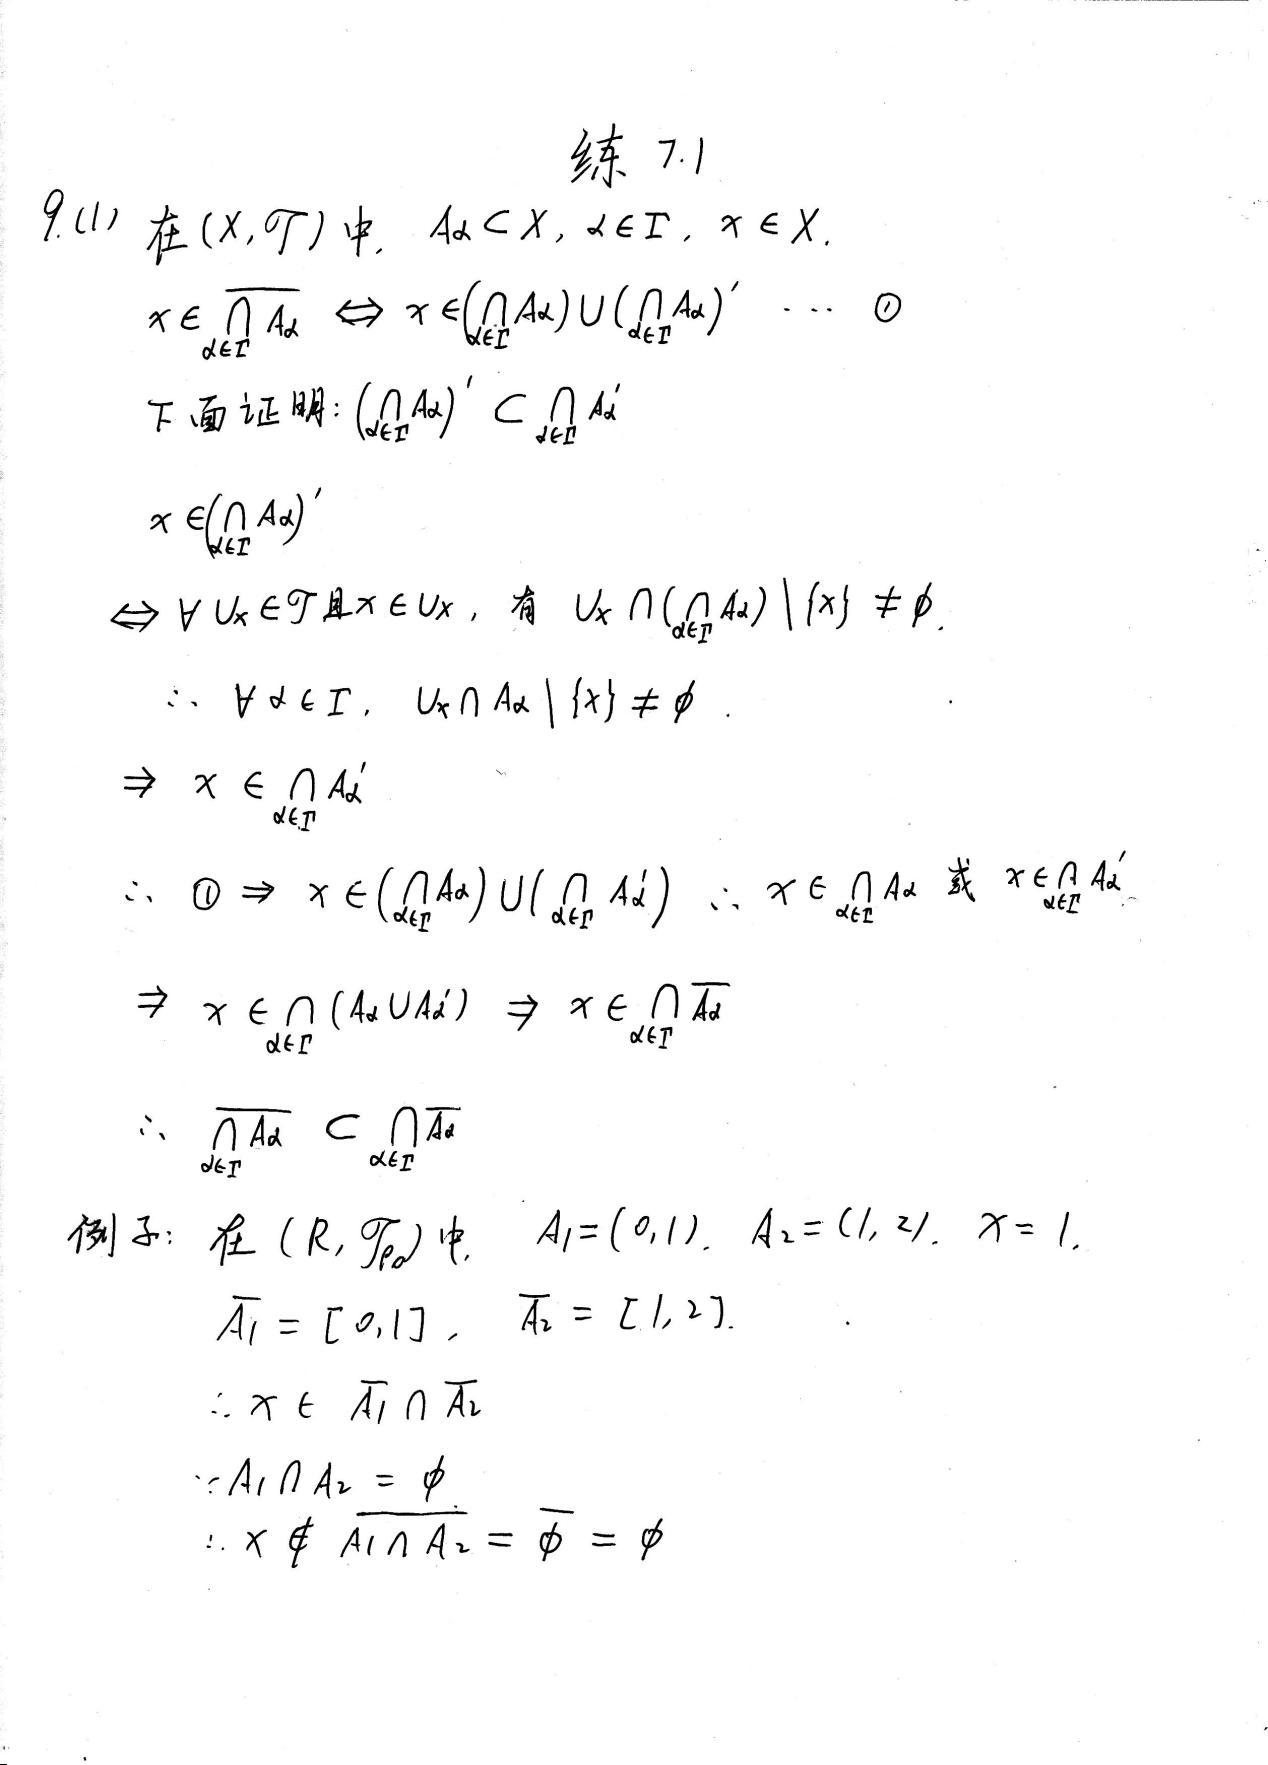 练 7.1
9.(1) 在 (X, 𝒯) 中. Aα ⊂ X, α∈Γ, x ∈ X.
x ∈ \overline{⋂_{α∈Γ} Aα} ⇔ x ∈ (⋂_{α∈Γ} Aα) ∪ (⋂_{α∈Γ} Aα)′ ... ①
下面证明: (⋂_{α∈Γ} Aα)′ ⊂ ⋂_{α∈Γ} Aα′
x ∈ (⋂_{α∈Γ} Aα)′
⇔ ∀ Ux ∈ 𝒯 且 x ∈ Ux, 有 Ux ∩ (⋂_{α∈Γ} Aα) \ {x} ≠ ϕ.
∴ ∀ α ∈ Γ, Ux ∩ Aα \ {x} ≠ ϕ.
⇒ x ∈ ⋂_{α∈Γ} Aα′
∴ ① ⇒ x ∈ (⋂_{α∈Γ} Aα) ∪ (⋂_{α∈Γ} Aα′) ∴ x ∈ ⋂_{α∈Γ} Aα 或 x ∈ ⋂_{α∈Γ} Aα′.
⇒ x ∈ ⋂_{α∈Γ} (Aα ∪ Aα′) ⇒ x ∈ ⋂_{α∈Γ} \overline{Aα}
∴ \overline{⋂_{α∈Γ} Aα} ⊂ ⋂_{α∈Γ} \overline{Aα}
例子: 在 (R, 𝒯) 中. A₁=(0,1). A₂=(1,2). x=1.
\overline{A₁} = [0,1], \overline{A₂} = [1,2].
∴ x ∈ \overline{A₁} ∩ \overline{A₂}
∵ A₁ ∩ A₂ = ϕ.
∴ x ∉ \overline{A₁ ∩ A₂} = \overline{ϕ} = ϕ